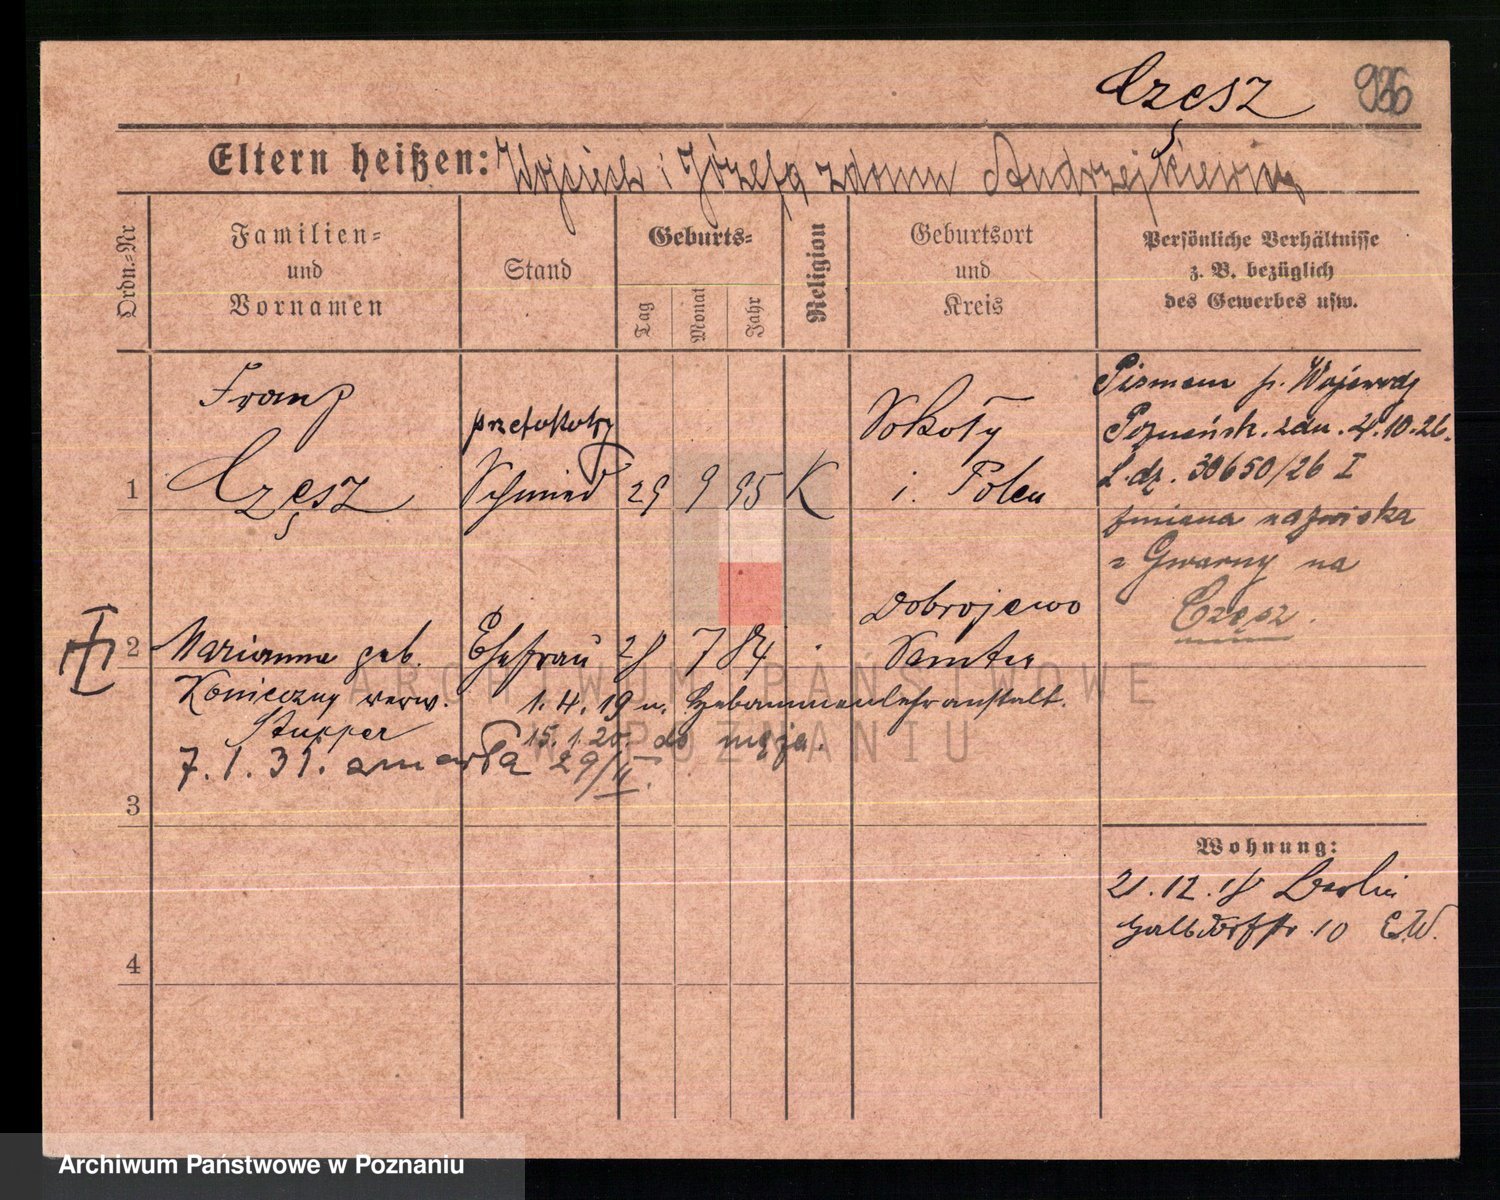 Częsz 936
Eltern heißen: Wojciech i Józefa z domu Andrzejkiewicz
Ordn.-Nr
Familien-
und
Vornamen
Stand
Geburts-
Tag
Monat
Jahr
Religion
Geburtsort
und
Kreis
Persönliche Verhältnisse
z. B. bezüglich
des Gewerbes usw.
1
Franz
Częsz
Schmied
29 9 95 K
Sokoły
i. Polen
Pismem p. Wojewody
Poznańsk. z dn. 4.10.26.
L.dz. 30650/26 I
zmiana nazwiska
z Gwarny na
Częsz.
2
Marianna geb.
Konieczny verw.
Stupper
Ehefrau
28 7 84
Dobrojewo
Samter
1.4.19 n. Hebammenlehranstalt.
15.1.20. do męża.
7.1.31. zmarła 29/II.
3
4
Wohnung:
21.12.18 Berlin
10 E.W.
ARCHIWUM PAŃSTWOWE
W POZNANIU
Archiwum Państwowe w Poznaniu